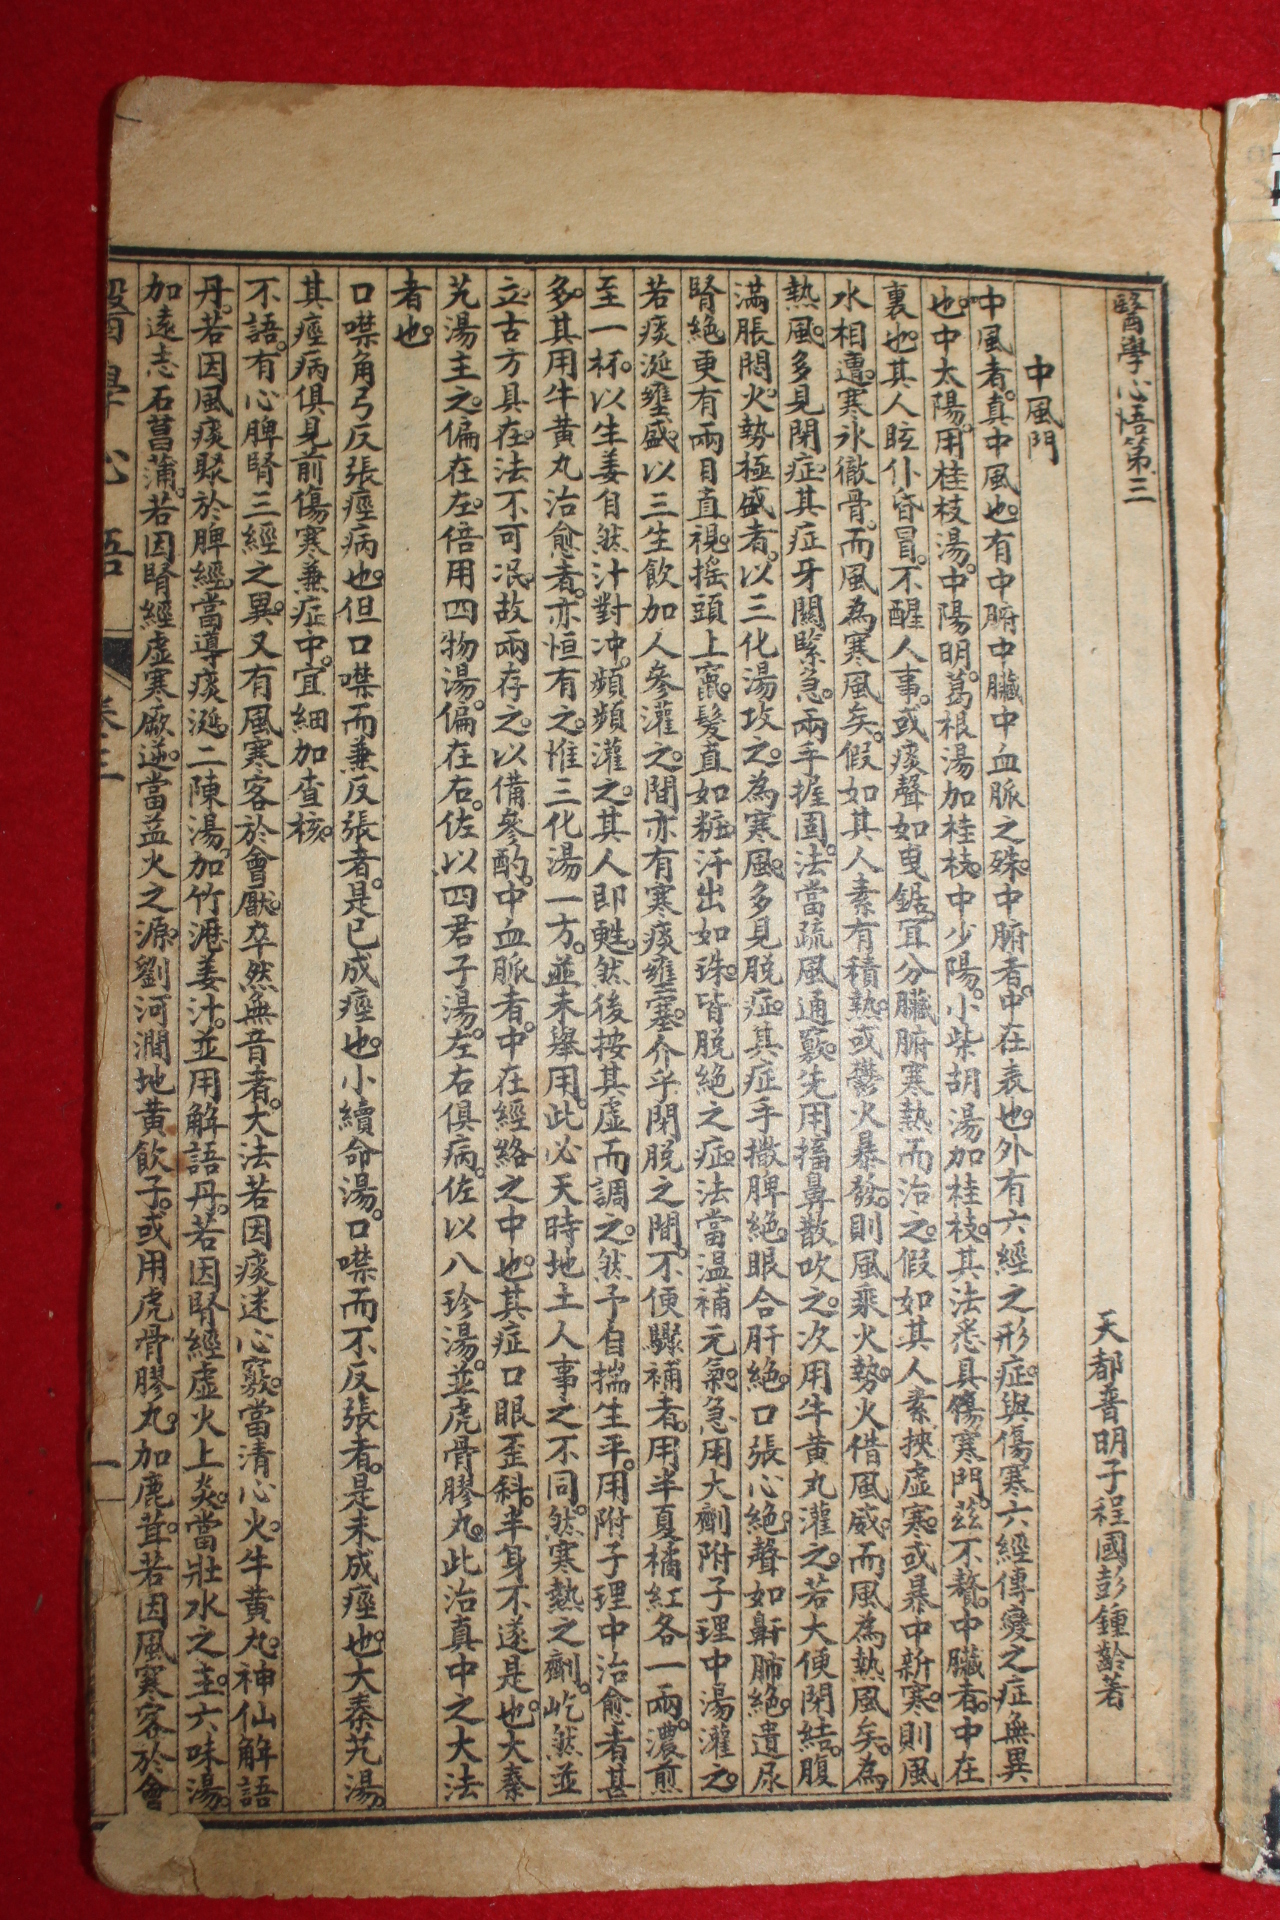 醫學心悟第三
天都普明子程國彭鍾齡著
中風門
中風者。真中風也。有中腑中臟中血脈之殊。中腑者。中在表也。外有六經之形症。與傷寒六經傳變之症無異
也。中太陽。用桂枝湯。中陽明。葛根湯加桂枝。中少陽。小柴胡湯加桂枝。其法悉具傷寒門。茲不贅。中臟者。中在
裏也。其人眩仆昏冒。不醒人事。或痰聲如曳鋸。宜分臟腑寒熱而治之。假如其人素挾虛寒。或暴中新寒。則風
水相遭。寒冰徹骨。而風為寒風矣。假如其人素有積熱。或鬱火暴發。則風乘火勢。火借風威。而風為熱風矣。為
熱風。多見閉症。其症牙關緊急。兩手握固。法當疏風通竅。先用搐鼻散吹之。次用牛黃丸灌之。若大便閉結。腹
滿脹悶。火勢極盛者。以三化湯攻之。為寒風。多見脫症。其症手撒脾絕。眼合肝絕。口張心絕。聲如鼾肺絕。遺尿
腎絕。更有兩目直視。搖頭上竄。髮直如粧。汗出如珠。皆脫絕之症。法當温補元氣。急用大劑附子理中湯灌之。
若痰涎壅盛。以三生飲加人參灌之。間亦有寒痰壅塞。介乎閉脫之間。不便驟補者。用半夏橘紅各一兩。濃煎
至一杯。以生姜自然汁對冲。頻頻灌之。其人即甦。然後按其虛而調之。然予自揣生平。用附子理中治愈者甚
多。其用牛黃丸治愈者。亦恒有之。惟三化湯一方。並未舉用。此必天時地土人事之不同。然寒熱之劑。屹然並
立。古方具在。法不可泯。故兩存之。以備參酌。中血脈者。中在經絡之中也。其症口眼歪斜。半身不遂是也。大秦
艽湯主之。偏在左。倍用四物湯。偏在右。佐以四君子湯。左右俱病。佐以八珍湯。並虎骨膠丸。此治真中之大法
者也。
口噤角弓反張痙病也。但口噤而兼反張者。是已成痙也。小續命湯。口噤而不反張者。是未成痙也。大秦艽湯。
其痙病俱見前傷寒兼症中。宜細加查核。
不語。有心脾腎三經之異。又有風寒客於會厭。卒然無音者。大法若因痰迷心竅。當清心火。牛黃丸。神仙解語
丹。若因風痰聚於脾經。當導痰涎。二陳湯。加竹瀝姜汁。並用解語丹。若因腎經虛火上炎。當壯水之主。六味湯。
加遠志石菖蒲。若因腎經虛寒厥逆。當益火之源。劉河澗地黃飲子。或用虎骨膠丸。加鹿茸。若因風寒客於會
醫學心悟
卷三
一